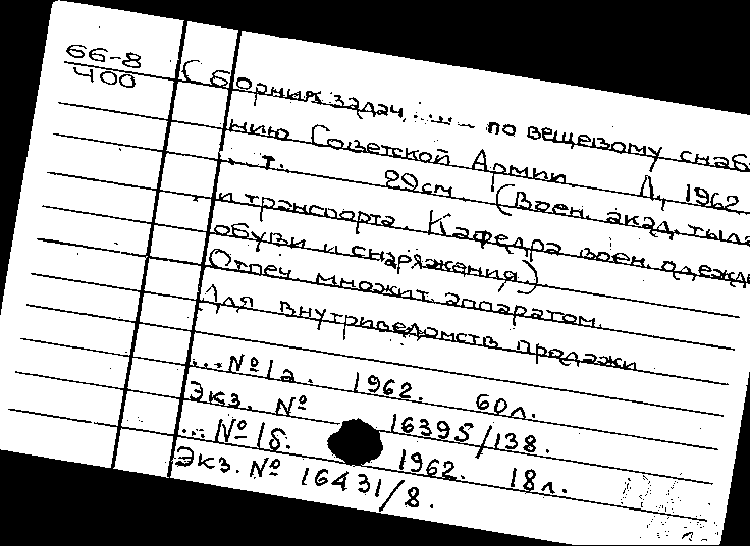 66-8
400
Сборник задач ... по вещевому снаб
нию Советской Армии. Л., 1962.
... т. 29см. (Воен. акад. тыла
и транспорта. Кафедра воен. одежды
обуви и снаряжения.)
Отпеч. множит. аппаратом.
Для внутриведомств. продажи
...№1а. 1962. 60л.
Экз. № 16395/138.
...№1б. 1962. 18л.
Экз. № 16431/8.